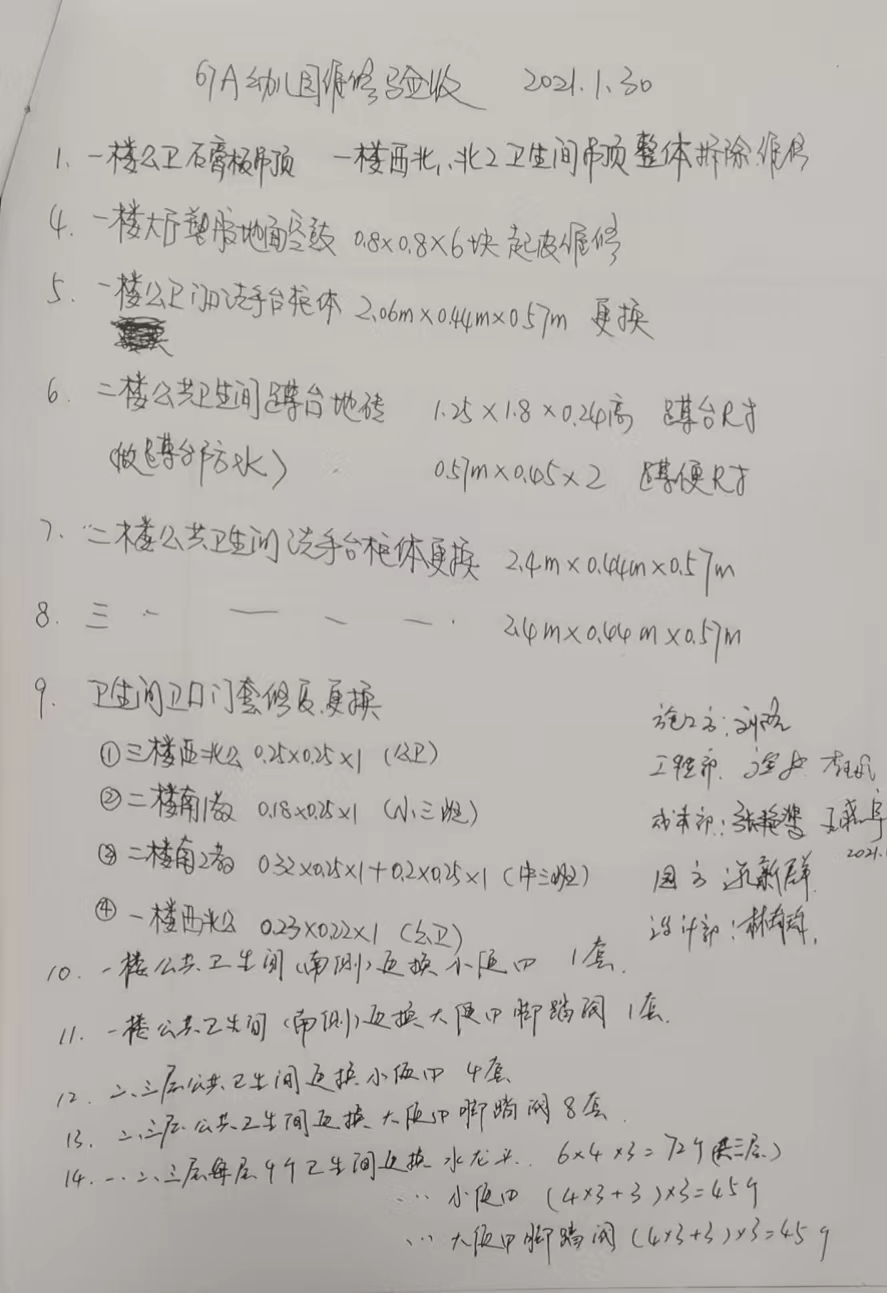 67A幼儿园维修验收 2021.1.30
1. 一楼公卫石膏板吊顶 一楼西北1、北2卫生间吊顶整体拆除维修
4. 一楼大厅塑胶地面空鼓 0.8×0.8×6块起皮维修
5. 一楼公卫门口洗手台柜体 2.06m×0.44m×0.57m 更换
6. 二楼公共卫生间蹲台地砖 1.25×1.8×0.24高 蹲台尺寸
(做蹲台防水) 0.57m×0.45×2 蹲便尺寸
7. 二楼公共卫生间洗手台柜体更换 2.4m×0.44m×0.57m
8. 三 - — - - 2.4m×0.44m×0.57m
9. 卫生间卫口门套修复.更换
①三楼西北公 0.25×0.25×1 (公卫)
②二楼南1教 0.18×0.25×1 (小三班)
③二楼南2教 0.32×0.25×1+0.2×0.25×1 (中三班)
④一楼西北公 0.23×0.22×1 (公卫)
施工方:
工程部:
成本部:张艳
2021.1
园方: 新群
设计部:林
10. 一楼公共卫生间(南侧)更换小便四 1套.
11. 一楼公共卫生间(南侧)更换大便四脚踏阀 1套.
12. 二、三层公共卫生间更换小便四 4套
13. 二、三层公共卫生间更换大便四脚踏阀 8套
14. 一、二、三层每层4个卫生间更换水龙头. 6×4×3=72个(共三层)
... 小便四 (4×3+3)×3=45个
... 大便四脚踏阀 (4×3+3)×3=45个